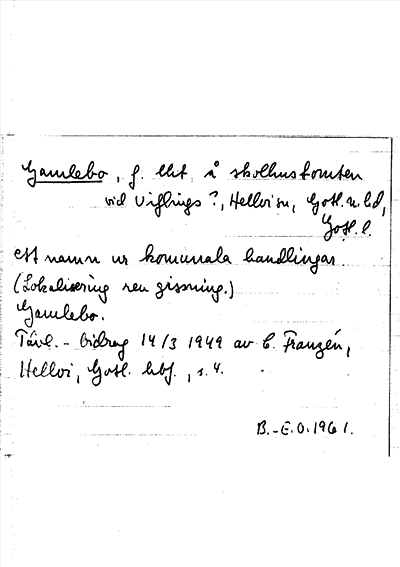 Gamlebo, f. lht. å skolhustomten
vid Viflings ?, Hellvi sn, Gotl. n. hd,
Gotl. l.
ett namn ur komunala handlingar
(Lokalisering ren gissning.)
Gamlebo.
Tävl.-bidrag 14/3 1949 av C. Franzén,
Hellvi, Gotl. hbf., s. 4.
B.-E. O. 1961.